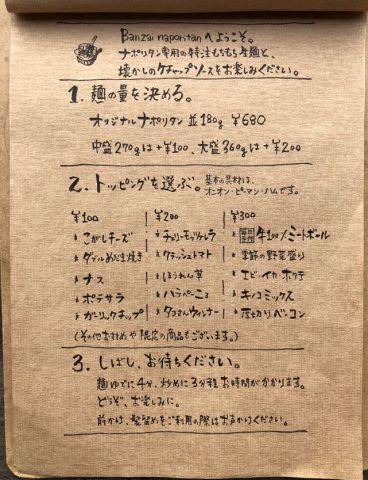 Banzai naporitanへようこそ。
ナポリタン専用の特注もちもち生麺と、
懐かしのケチャップソースをお楽しみください。
1. 麺の量を決める。
オリジナルナポリタン 並180g ¥680
中盛270gは+¥100、大盛360gは+¥200
2. トッピングを選ぶ。基本の具材は、
オニオン・ピーマン・ハムです。
¥100 ¥200 ¥300
こがしチーズ チェリーモッツァレラ 牛100%ミートボール
ダブルめだま焼き クラッシュトマト 季節の野菜盛り
ナス ほうれん草 エビ・イカ・ホタテ
ポテサラ ハラペーニョ キノコミックス
ガーリックチップ タコさんウィンナー 厚切りベーコン
(その他おすすめや限定の商品もございます。)
3. しばし、お待ちください。
麺ゆでに4分、炒めに3分程お時間がかかります。
どうぞ、お楽しみに。
前かけ、髪留めをご利用の際はお声かけください。